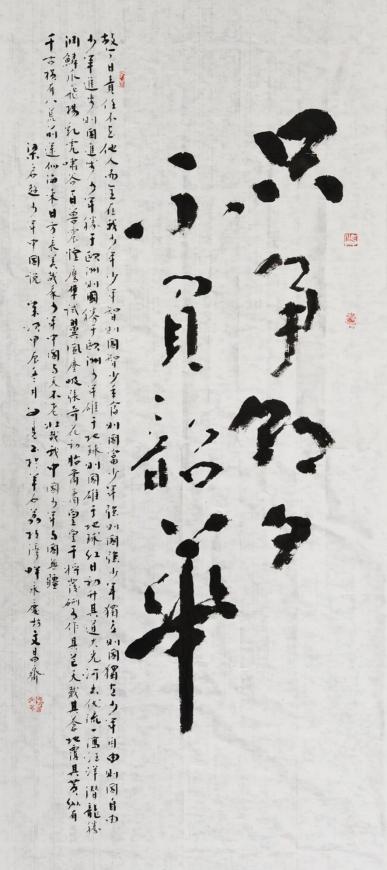 只争朝夕
不負韶華
故今日責任不在他人而全在我少年少年智则國智少年富则國富少年强则國强少年獨立则國獨立少年自由则國自由
少年進步则國進步少年勝于歐洲则國勝于歐洲少年雄于地球则國雄于地球红日初升其道大光河出伏流一瀉汪洋潜龍騰
渊鳞爪飛揚乳虎嘯谷百兽震惶鷹隼試翼風塵吸張奇花初胎矞矞皇皇干將發硎有作其芒天戴其蒼地履其黄纵有
千古横有八荒前途似海来日方長美哉我少年中國与天不老壮哉我中國少年与國無疆
梁启超少年中國説 歲次甲辰冬月